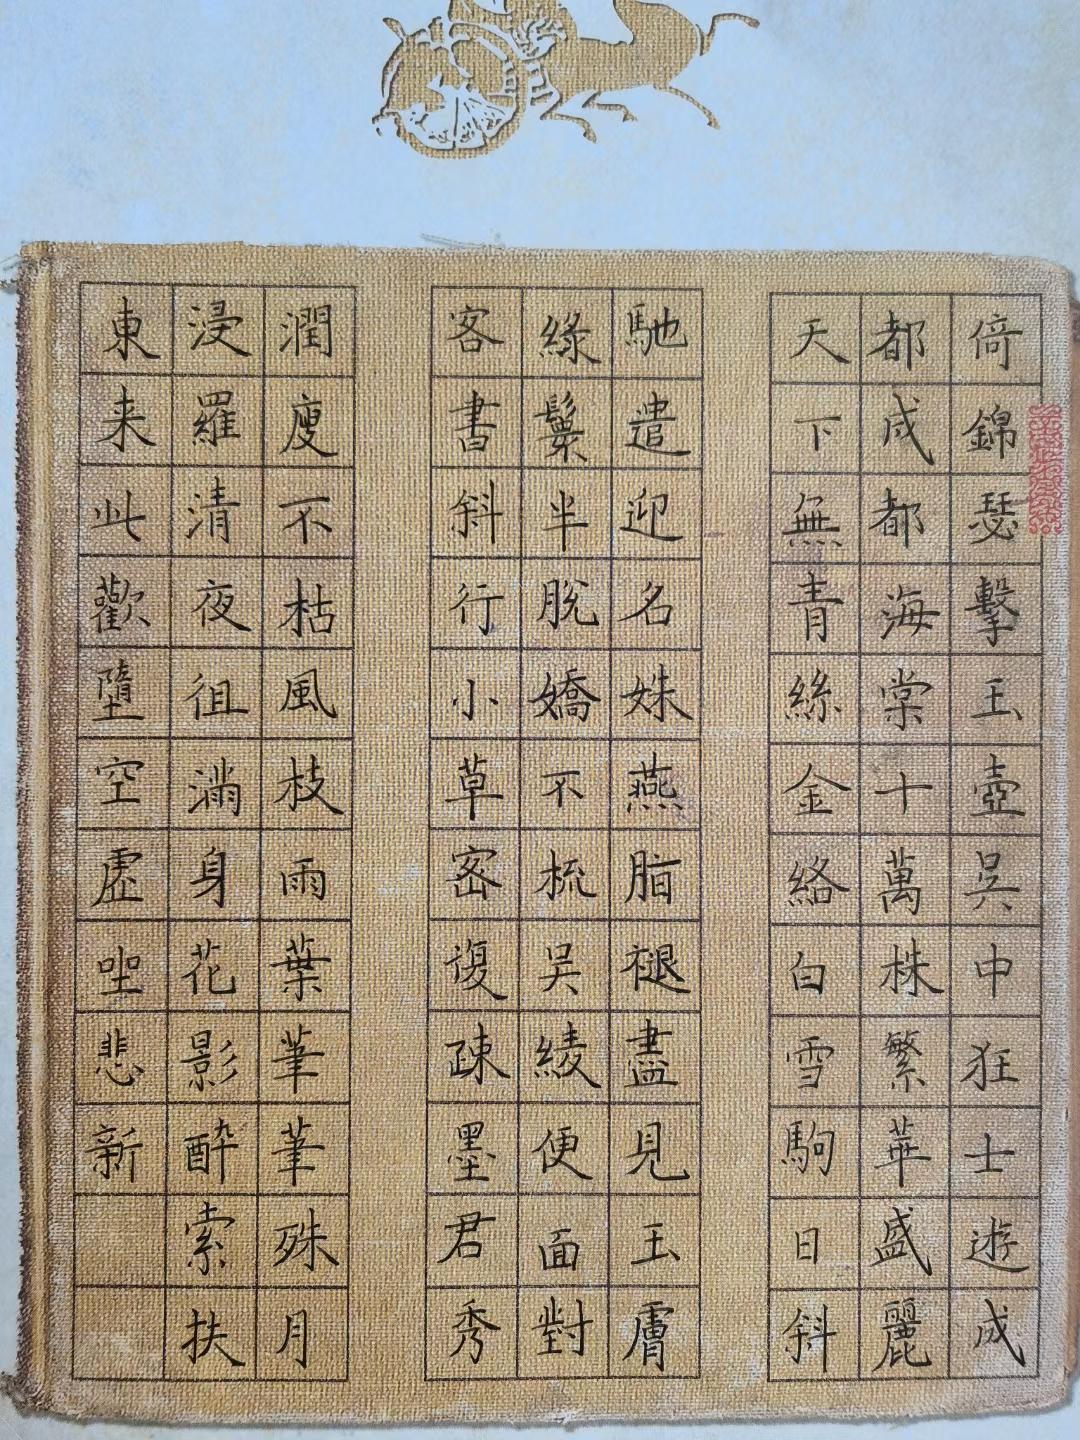 倚錦瑟擊玉壺吳中狂士遊成
都成都海棠十萬株繁華盛麗
天下無青絲金絡白雪駒日斜
馳遣迎名姝燕脂褪盡見玉膚
綠鬟半脫嬌不梳吳綾便面對
客書斜行小草密復疎墨君秀
潤瘦不枯風枝雨葉筆筆殊月
浸羅清夜徂滿身花影醉索扶
東来此歡墮空虛坐悲新